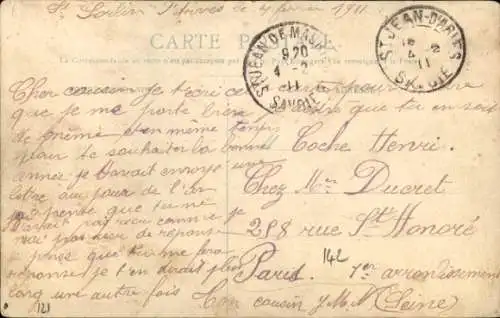 St Sorlin d'Arves le 4 février 1911
CARTE POSTALE
ST JEAN DE MAUR
9 20
4 - 2
11
SAVOIE
ST JEAN-D'ARVES
4 2
11
SAVOIE
Cher cousin je t'écri ce pour
que je me porte bien j'espère que tu en soit
de même et en même temps
pour te souhaiter la bonne
année je t'avait envoyé une
lettre au jour de l'an
je pense que tu ne
l'avait pas reçu comme je
pas de réponse
je pense que tu me fera
réponse je t'en dirait plus
long une autre fois Ton cousin J. M. N
Coche Henri.
Chez Mr Ducret
218 rue St Honoré
142
Paris. 1er arrondissement
(Seine)
121